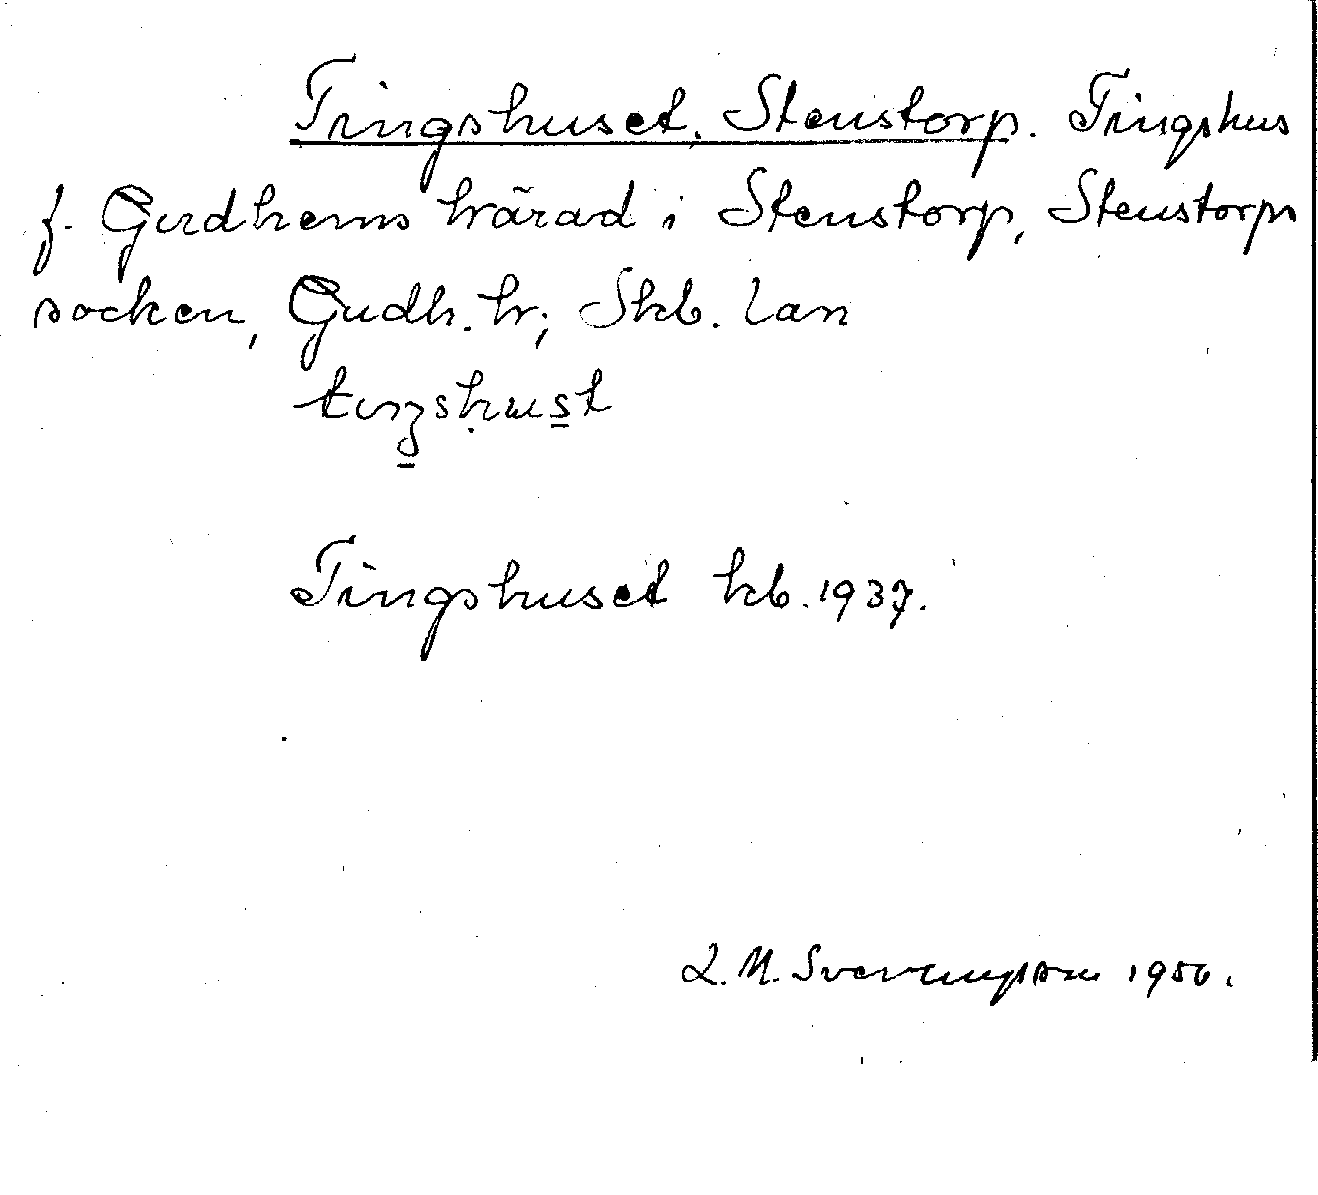 Tingshuset, Stenstorp. Tingshus
f. Gudhems härad i Stenstorp, Stenstorps
socken, Gudh. hr; Skb. län
Tingshuset kb. 1937.
L. M. Svernungsson 1950.